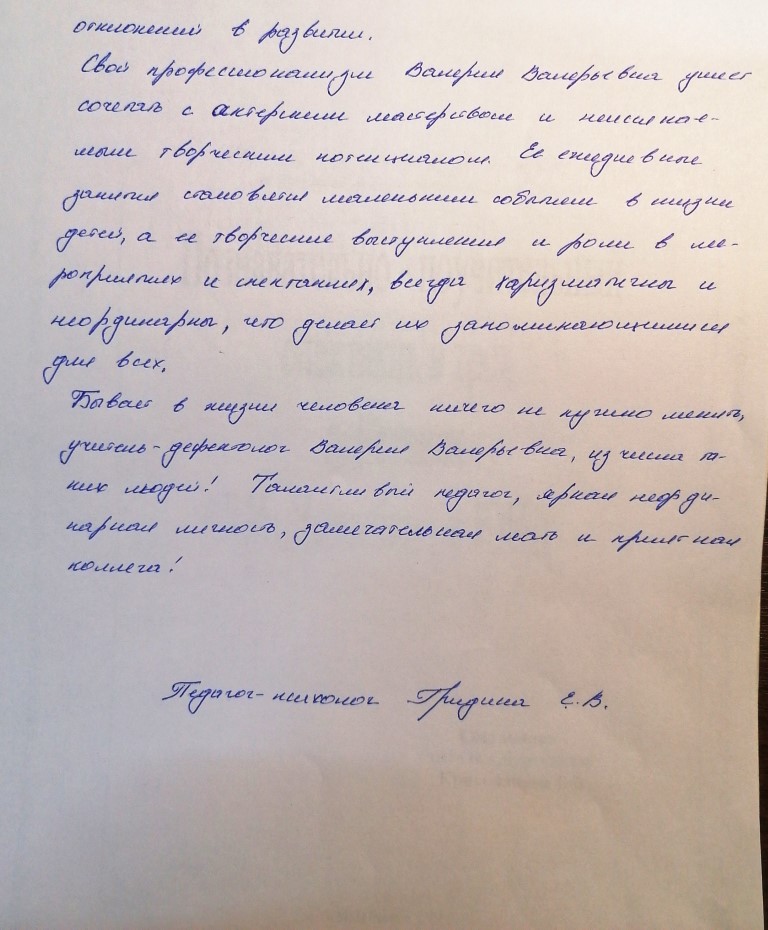 отклонений в развитии.
Свой профессионализм Валерия Валерьевна умеет
сочетать с актерским мастерством и неиссякае-
мым творческим потенциалом. Ее ежедневные
занятия становятся маленьким событием в жизни
детей, а ее творческие выступления и роли в ме-
роприятиях и спектаклях, всегда харизматичны и
неординарны, что делает их запоминающимися
для всех.
Бывает в жизни человека ничего не нужно менять,
учитель-дефектолог Валерия Валерьевна, из числа та-
ких людей! Талантливый педагог, яркая неорди-
нарная личность, замечательная мать и приятная
коллега!
Педагог-психолог Гридина Е.В.